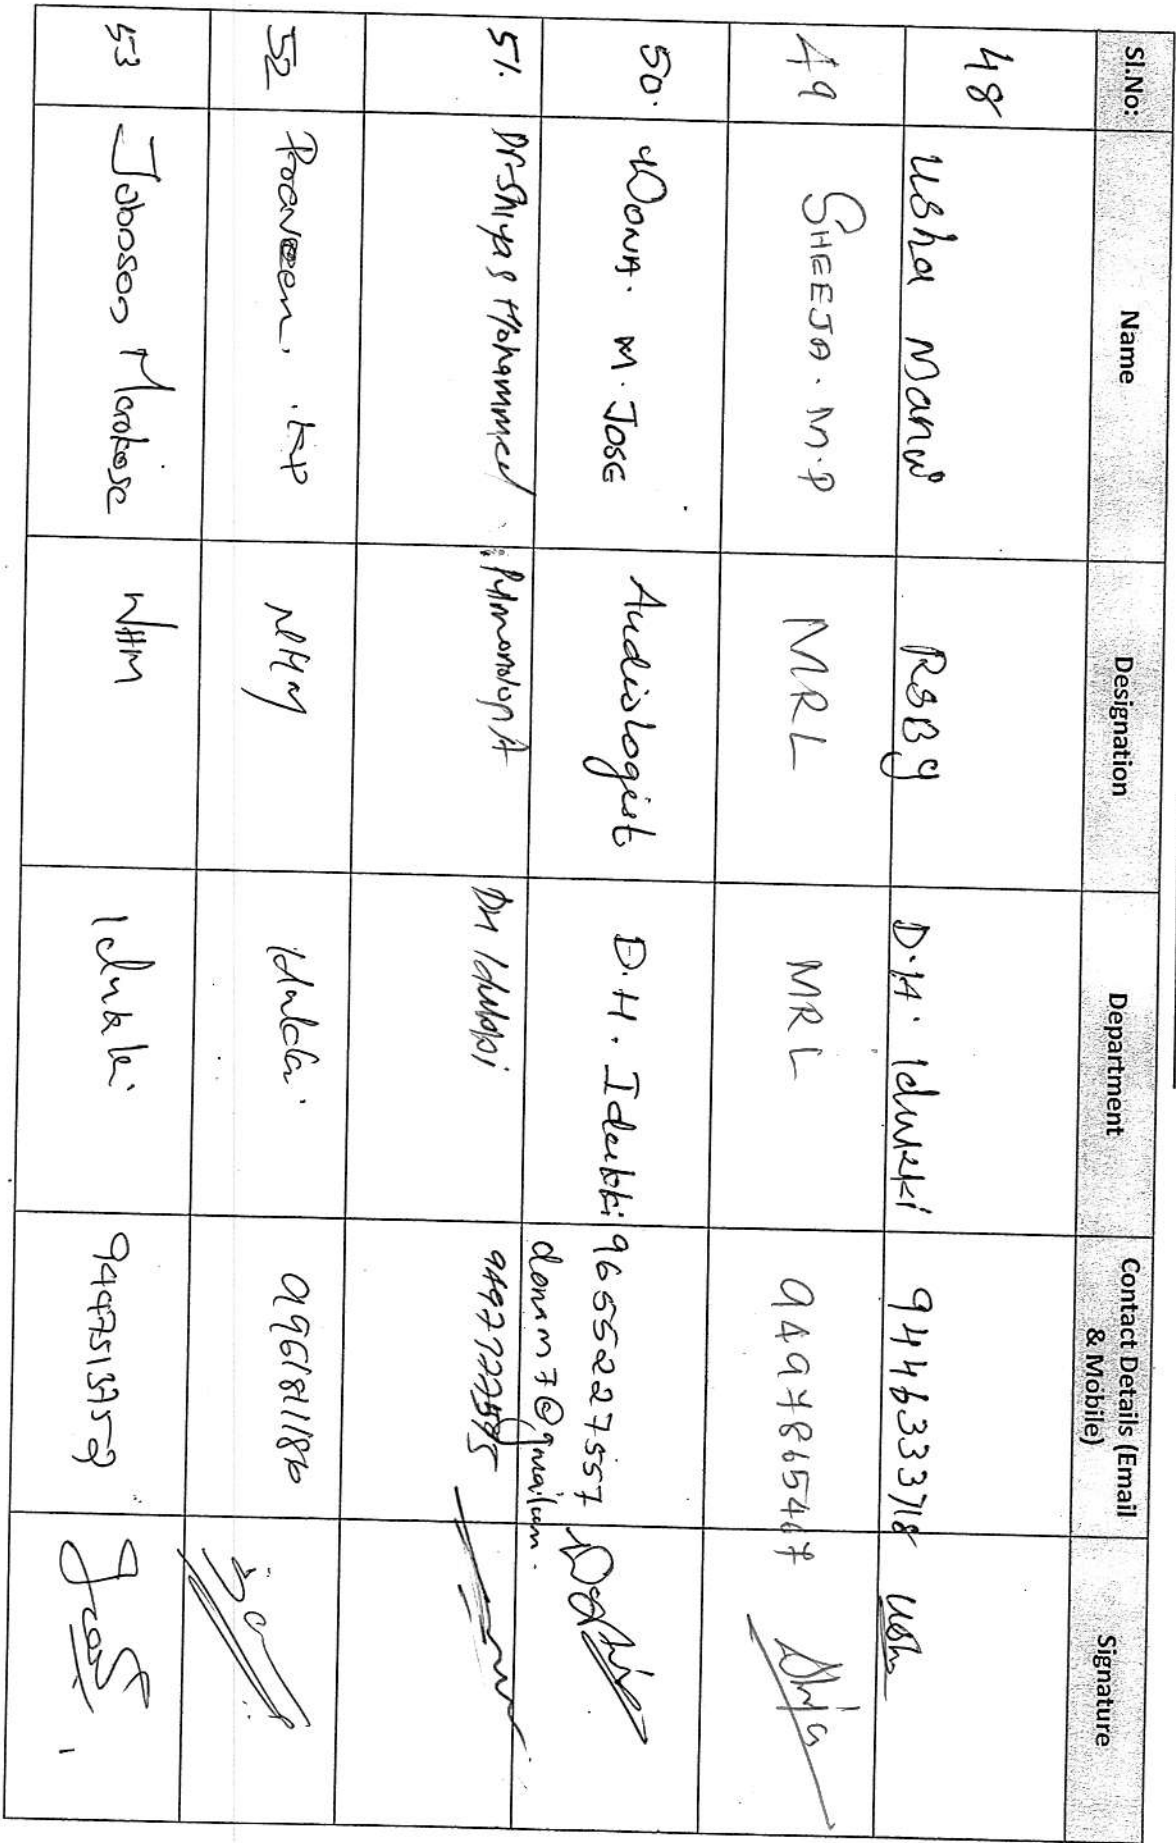 Sl.No: Name Designation Department Contact Details (Email & Mobile) Signature
48 Usha Manu RSBY D.H. Idukki 9446333718 Usha
49 SHEEJA. M.P MRL MRL 9497865467
50. DONA. M. JOSE Audiologist D.H. Idukki 9655227557
51. Dr. Shiyas Mohammed Pulmonologist DH Idukki
52 Praveen. KP NHM Idukki.
53 Jobson Markose NHM Idukki